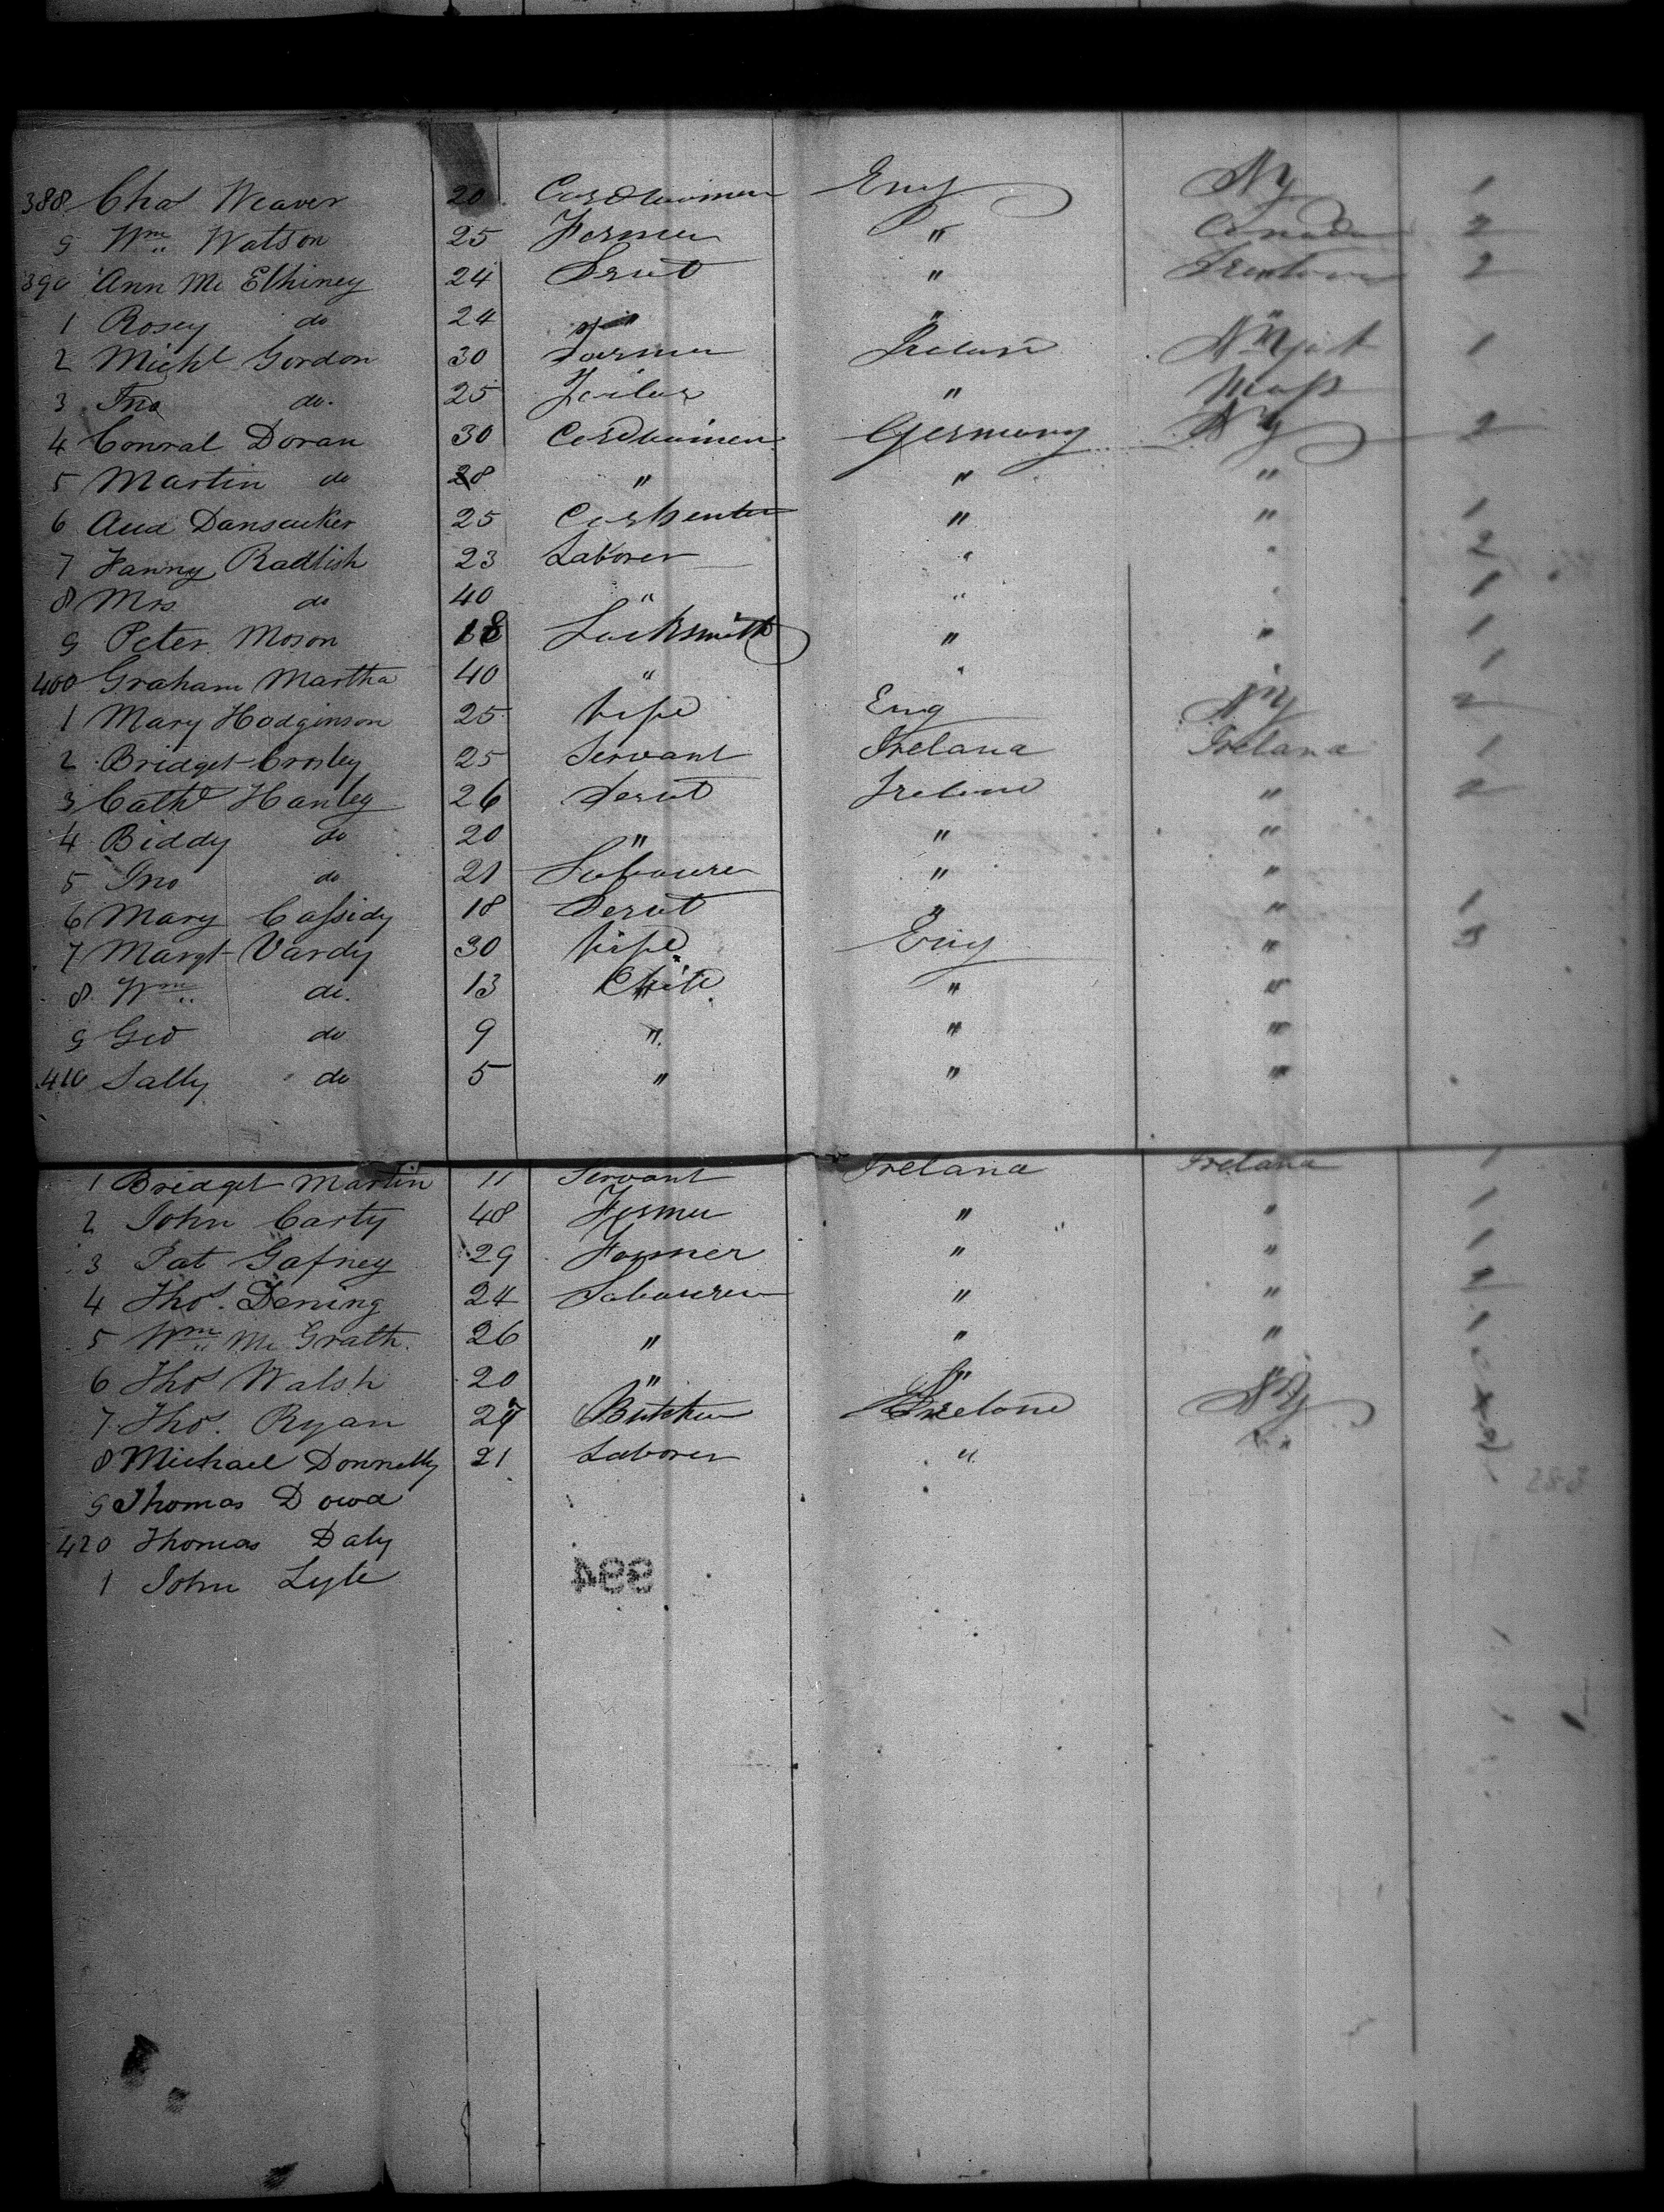 388 Chas Weaver 20 Cordwainer Eng NY 1
9 Wm Watson 25 Farmer " Canada 2
390 Ann Mc Elhiney 24 Servt " 2
1 Rosey do 24 " " "
2 Michl Gordon 30 Farmer Ireland 1
3 Jno do. 25 " Mass
4 Conral Doran 30 Cordwainer Germany NY 2
5 Martin do 28 " " "
6 Aud Dansauker 25 Carpenter " " 1
7 Fanny Radlish 23 Laborer " " 2
8 Mrs do 40 " " " 1
9 Peter Moson 18 Locksmith " " 1
400 Graham Martha 40 " " " 1
1 Mary Hodginson 25 Wife Eng NY 2
2 Bridget Crosley 25 Servant Ireland Ireland 1
3 Cathe Hanley 26 Servt Ireland " 2
4 Biddy do 20 " " "
5 Jno do 21 Labourer " "
6 Mary Cassidy 18 Servt " " 1
7 Margt Vardy 30 Wife Eng "
8 Wm do. 13 Child " "
9 Geo do 9 " " "
410 Sally do 5 " " "
1 Bridget Martin 11 Servant Ireland Ireland 1
2 John Carty 48 Farmer " " 1
3 Pat Gafney 29 Farmer " " 1
4 Thos. Dening 24 Labourer " " 2
5 Wm Mc Grath. 26 " " " 1
6 Thos Walsh 20 " " "
7 Thos. Ryan 27 Butcher Ireland NY
8 Michael Donnelly 21 Laborer " "
9 Thomas Dowd
420 Thomas Daly
1 John Lyle
394